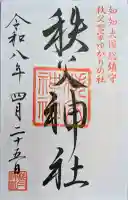 知知夫国総鎮守
秩父聖軍ゆかりの社
秩父神社
令和八年 四月二十五日